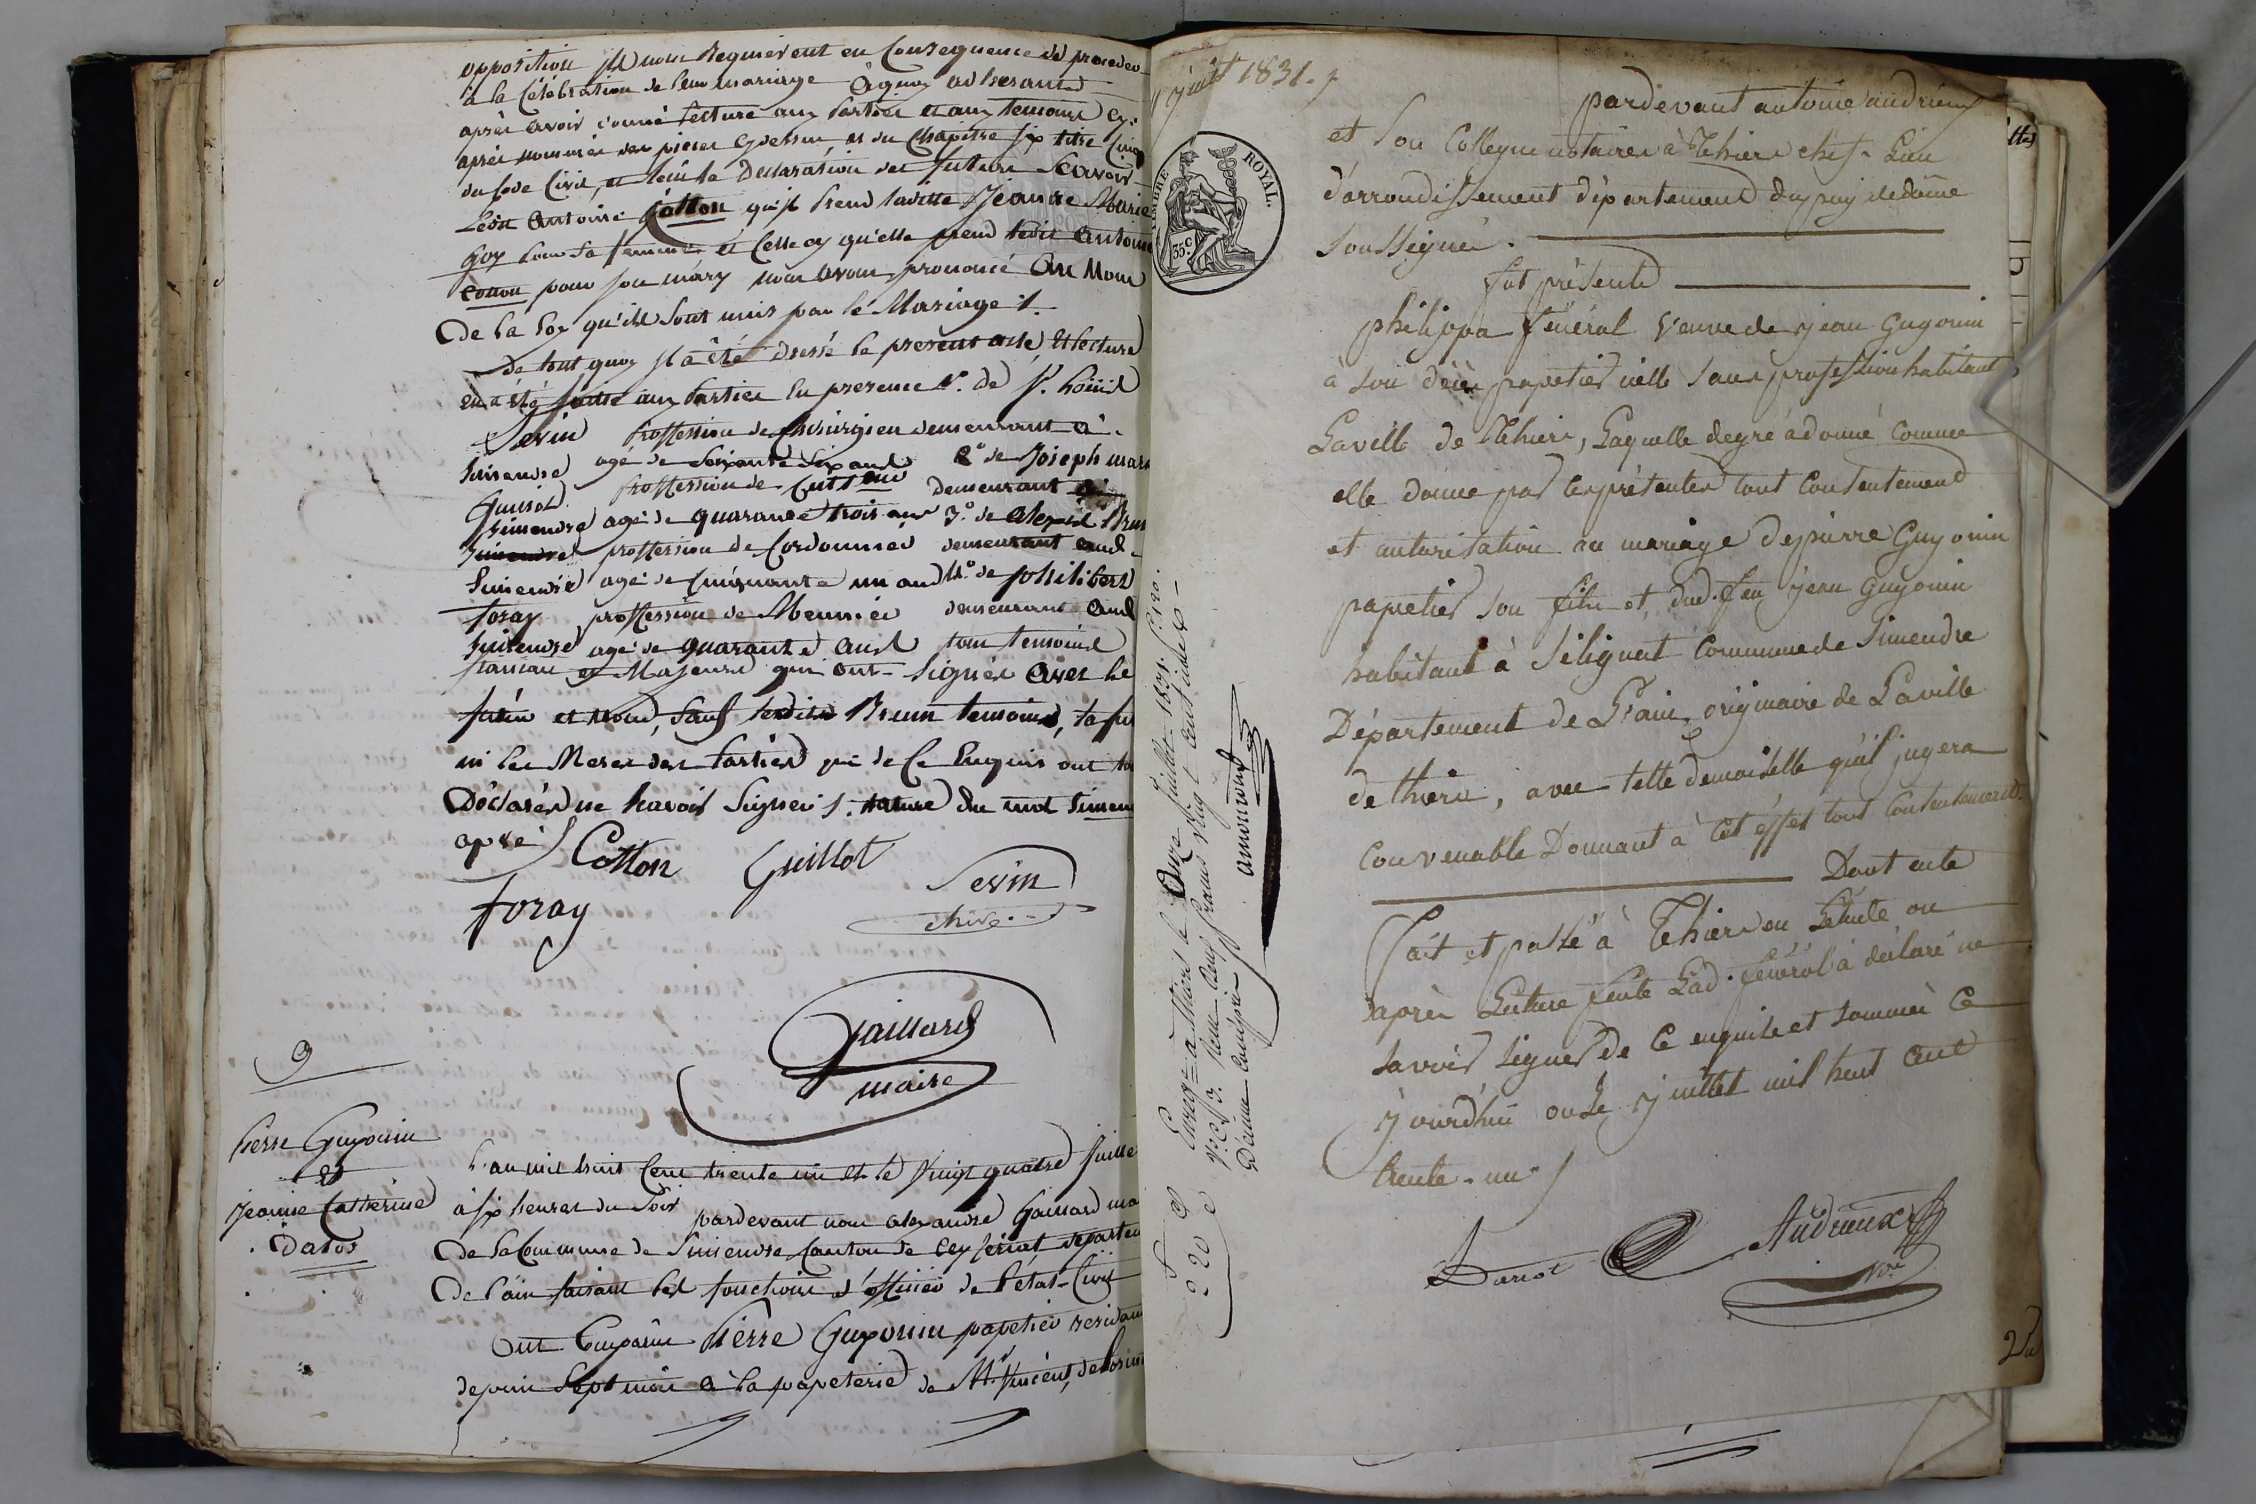 opposition Il nous Requierent en Consequence de proceder
à la Célébration de leur mariage à quoy adherant
après avoir donné lecture aux Parties et aux temoins cy-
après nommés des pieces cydessus et du Chapitre six titre Cinq
du Code Civil, et la Declaration des futurs Scavoir
Ledit Antoine Cotton qu'il Prend Laditte Jeanne Marie
Goy Pour Sa femme et Celle cy qu'elle prend ledit Antoine
Cotton pour son mary nous avons prononcé Au Nom
De La Loy qu'ils sont unis par le Mariage /.
De tout quoy Il a été dressé le present acte Et lecture
en a été faitte aux Parties En presence 1º. de Sr. Louis
Sevin Proffession de Chirurgien demeurant à
Simendre agé de Soixante Six ans 2º de Joseph marie
Guillot Proffession de demeurant à
Simendre agé de quarante trois ans 3º. de Alexis Brun
Simendre proffession de Cordonnier demeurant aud.
Simendre agé de Cinquante un ans 4º. de Philibert
foray proffession de Meunier demeurant aud
Simendre agé de quarante ans tous temoins
et Majeurs qui ont Signés avec le
futur et nous, Sauf ledit Brun temoins, la fu
ni les Meres des Parties qui de Ce Enquis ont
Déclarés ne Scavoir Signer /. rature du mot Simen
après /
Cotton Guillot
foray Sevin
chirg.
Gaillard
maire
9
Pierre Guyonin
et
Jeanne Catherine
Dalos
L'an mil huit Cent trente un et le Vingt quatre Juille
à six heures du Soir pardevant nous alexandre Gaillard ma
De la Commune de Simendre Canton de Ceyzériat departem
De l'ain faisant les fonctions d'officier de l'état-Civil
Ont Comparus Pierre Guyonin papetier residant
depuis Sept mois à la papeterie de Mr. Vincent,
11 juillet 1831.
TIMBRE ROYAL.
35c
pardevant antoine andrieux
et Son Collegue notaires à Thiers chef-Lieu
d'arrondissement département du puy de dôme
Soussignés.
fut présente
philippa fénérol Veuve de jean Guyonin
à son décès papetier elle sans profession habitant
La ville de Thiers, Laquelle de gré a donné comme
elle donne par ces présentes tout Consentement
et autorisation au mariage de pierre Guyonin
papetier son fils et dud. feu jean Guyonin
habitant à Sélignat Commune de Simendre
Département de L'ain, originaire de La ville
de thiers, avec telle demoiselle qu'il jugera
convenable Donnant à Cet effet tout Consentement.
Dont acte
fait et passé à Thiers en L'étude ou
après Lecture faite Lad. fénérol a déclaré ne
savoir signer de ce enquise et sommée Ce
jourd'hui onze juillet mil huit cent
trente-un /
Darrot Andrieux
Nre
Enregé. à Thiers le Onze Juillet 1831. fo. 170.
vo. Cs. 3. Reçu Deux francs Vingt Centimes
Dixieme Compris
2 20 c